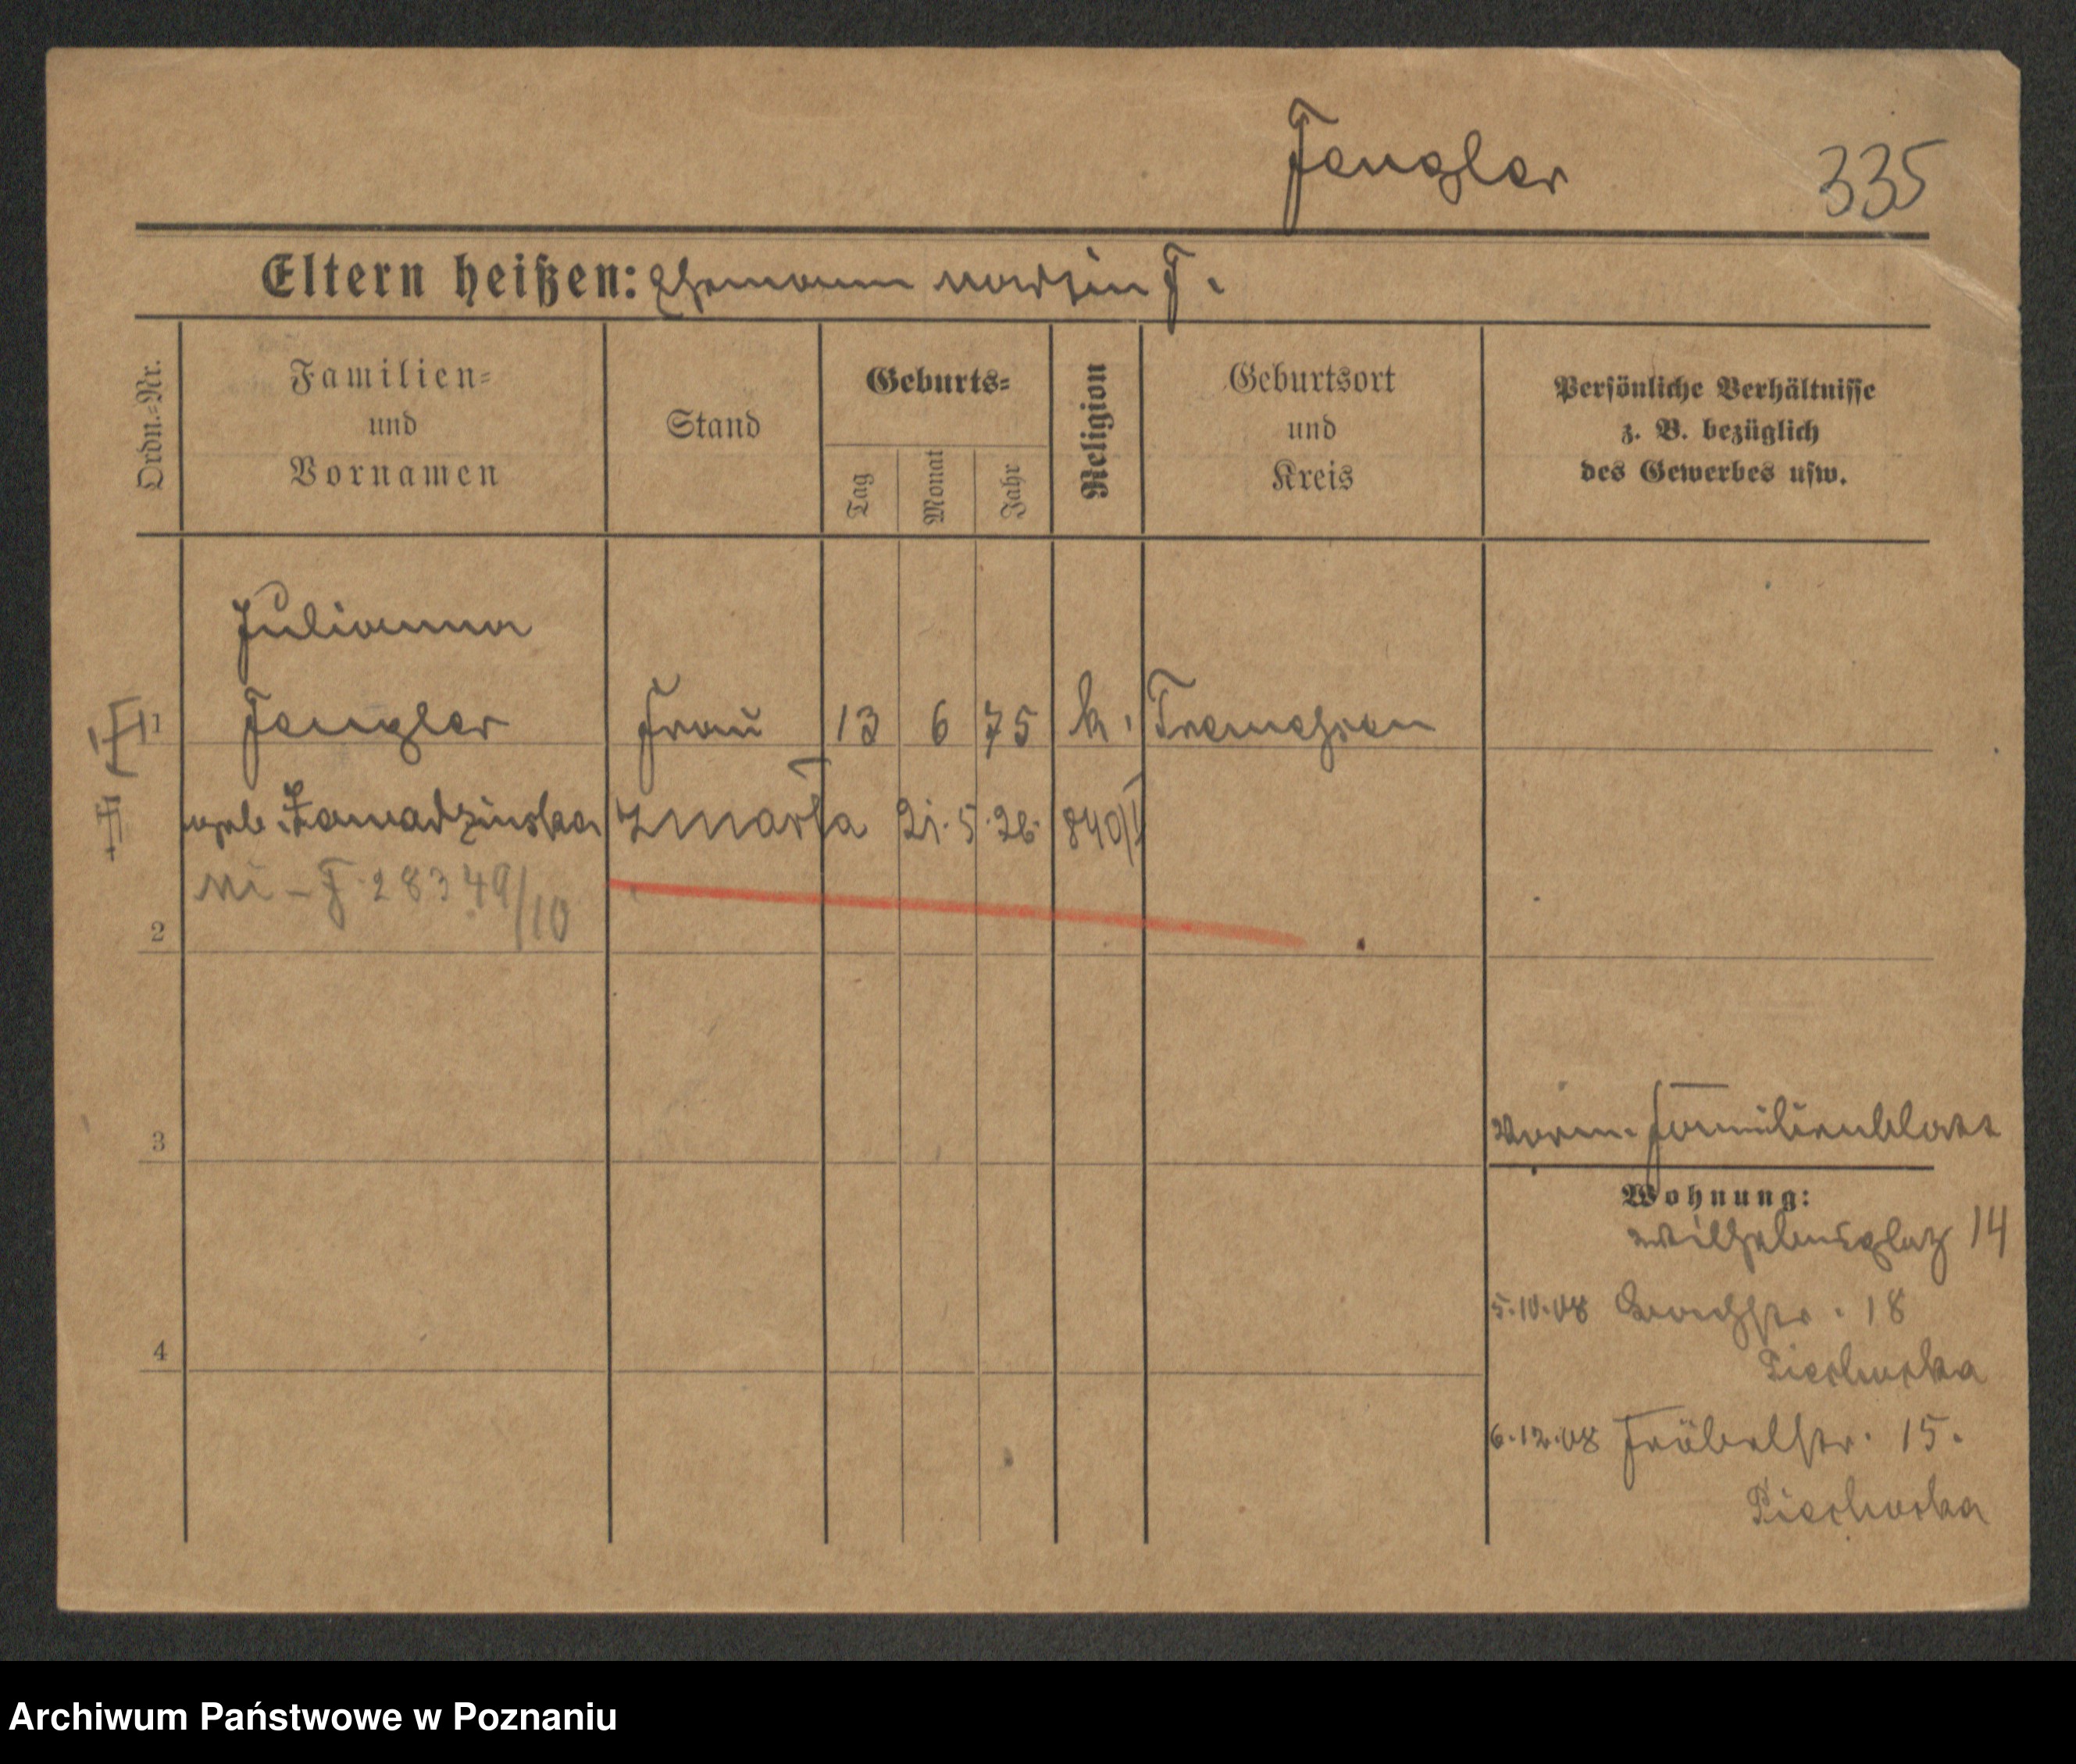 Fengler 335
Eltern heißen: Ehemann Martin F.
Ordn.-Nr.
Familien-
und
Vornamen
Stand
Geburts-
Tag
Monat
Jahr
Religion
Geburtsort
und
Kreis
Persönliche Verhältnisse
z. B. bezüglich
des Gewerbes usw.
Julianna
1 Fengler Frau 13 6 75 k. Tremessen
geb. Zawadzinska Zmarła 21.5.26. 840/I
28349/10
2
3
4
Familienblatt
Wohnung:
Wilhelmsplatz 14
5.10.08 18
6.12.08 Fröbelstr. 15.
Archiwum Państwowe w Poznaniu